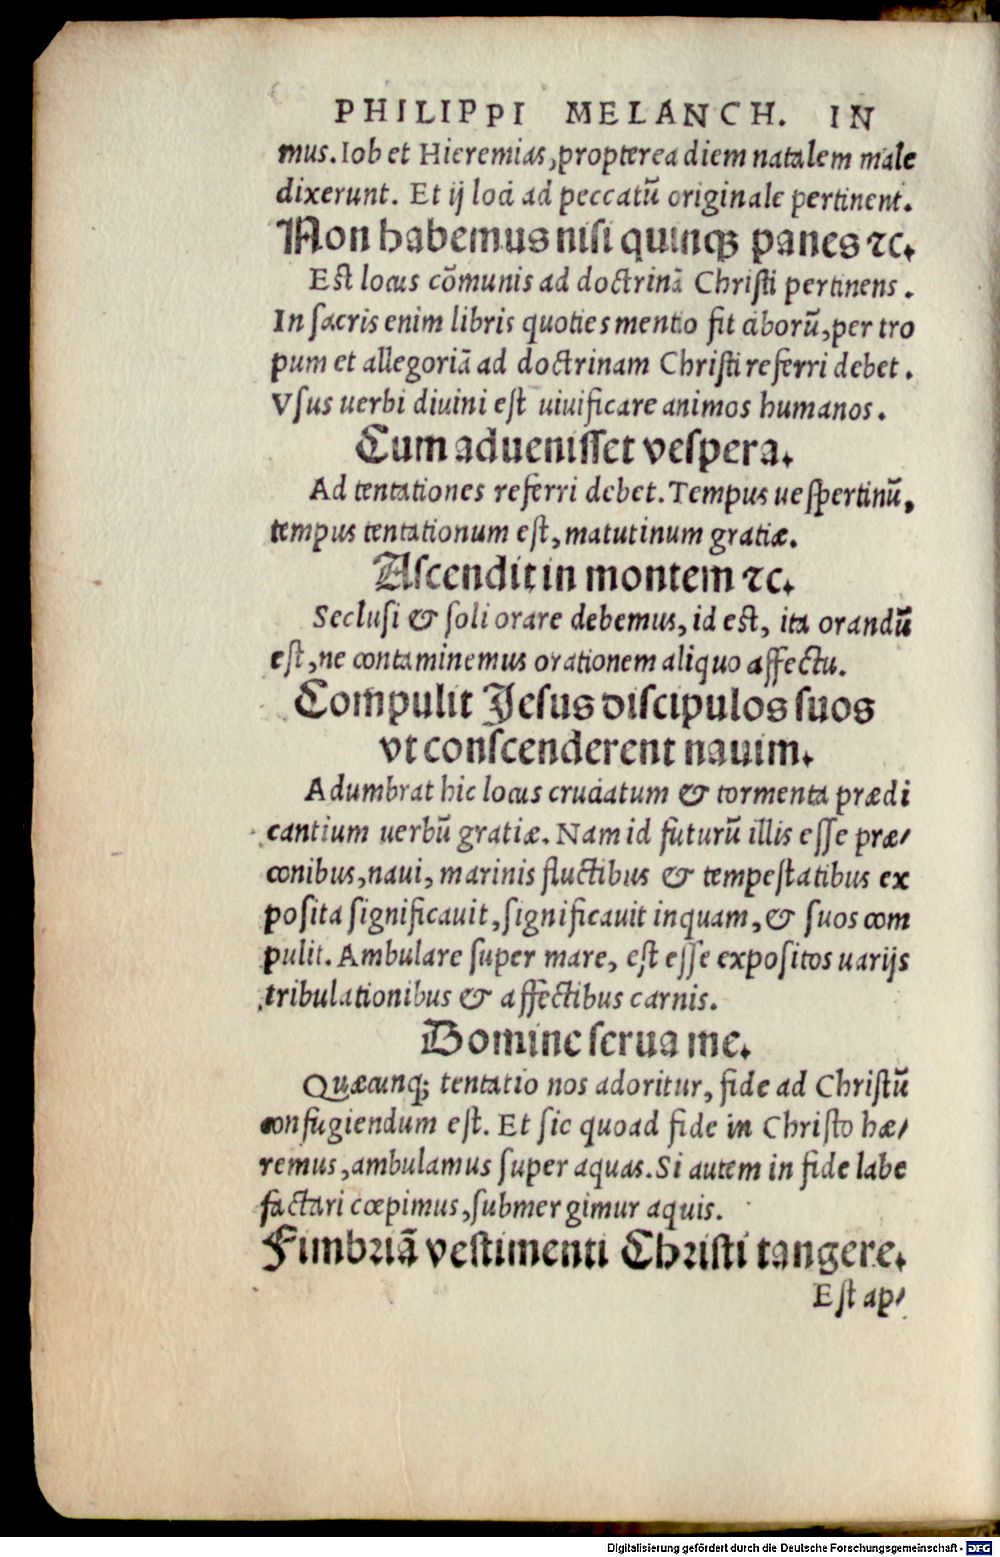 PHILIPPI MELANCH. IN
mus. Iob et Hieremias, propterea diem natalem male
dixerunt. Et ij loci ad peccatũ originale pertinent.
Non habemus nisi quinqꝫ panes ⁊c.
Est locus cõmunis ad doctrinã Christi pertinens.
In sacris enim libris quoties mentio fit ciborũ, per tro
pum et allegoriã ad doctrinam Christi referri debet.
Vsus uerbi diuini est uiuificare animos humanos.
Cum aduenisset vespera.
Ad tentationes referri debet. Tempus uespertinũ,
tempus tentationum est, matutinum gratiæ.
Ascendit in montem ⁊c.
Seclusi & soli orare debemus, id est, ita orandũ
est, ne contaminemus orationem aliquo affectu.
Compulit Jesus discipulos suos
vt conscenderent nauim.
Adumbrat hic locus cruciatum & tormenta prædi
cantium uerbũ gratiæ. Nam id futurũ illis esse præ/
conibus, naui, marinis fluctibus & tempestatibus ex
posita significauit, significauit inquam, & suos com
pulit. Ambulare super mare, est esse expositos uarijs
tribulationibus & affectibus carnis.
Domine serua me.
Quæcunqꝫ tentatio nos adoritur, fide ad Christũ
confugiendum est. Et sic quoad fide in Christo hæ/
remus, ambulamus super aquas. Si autem in fide labe
factari cœpimus, submergimur aquis.
Fimbriã vestimenti Christi tangere.
Est ap/
Digitalisierung gefördert durch die Deutsche Forschungsgemeinschaft - DFG